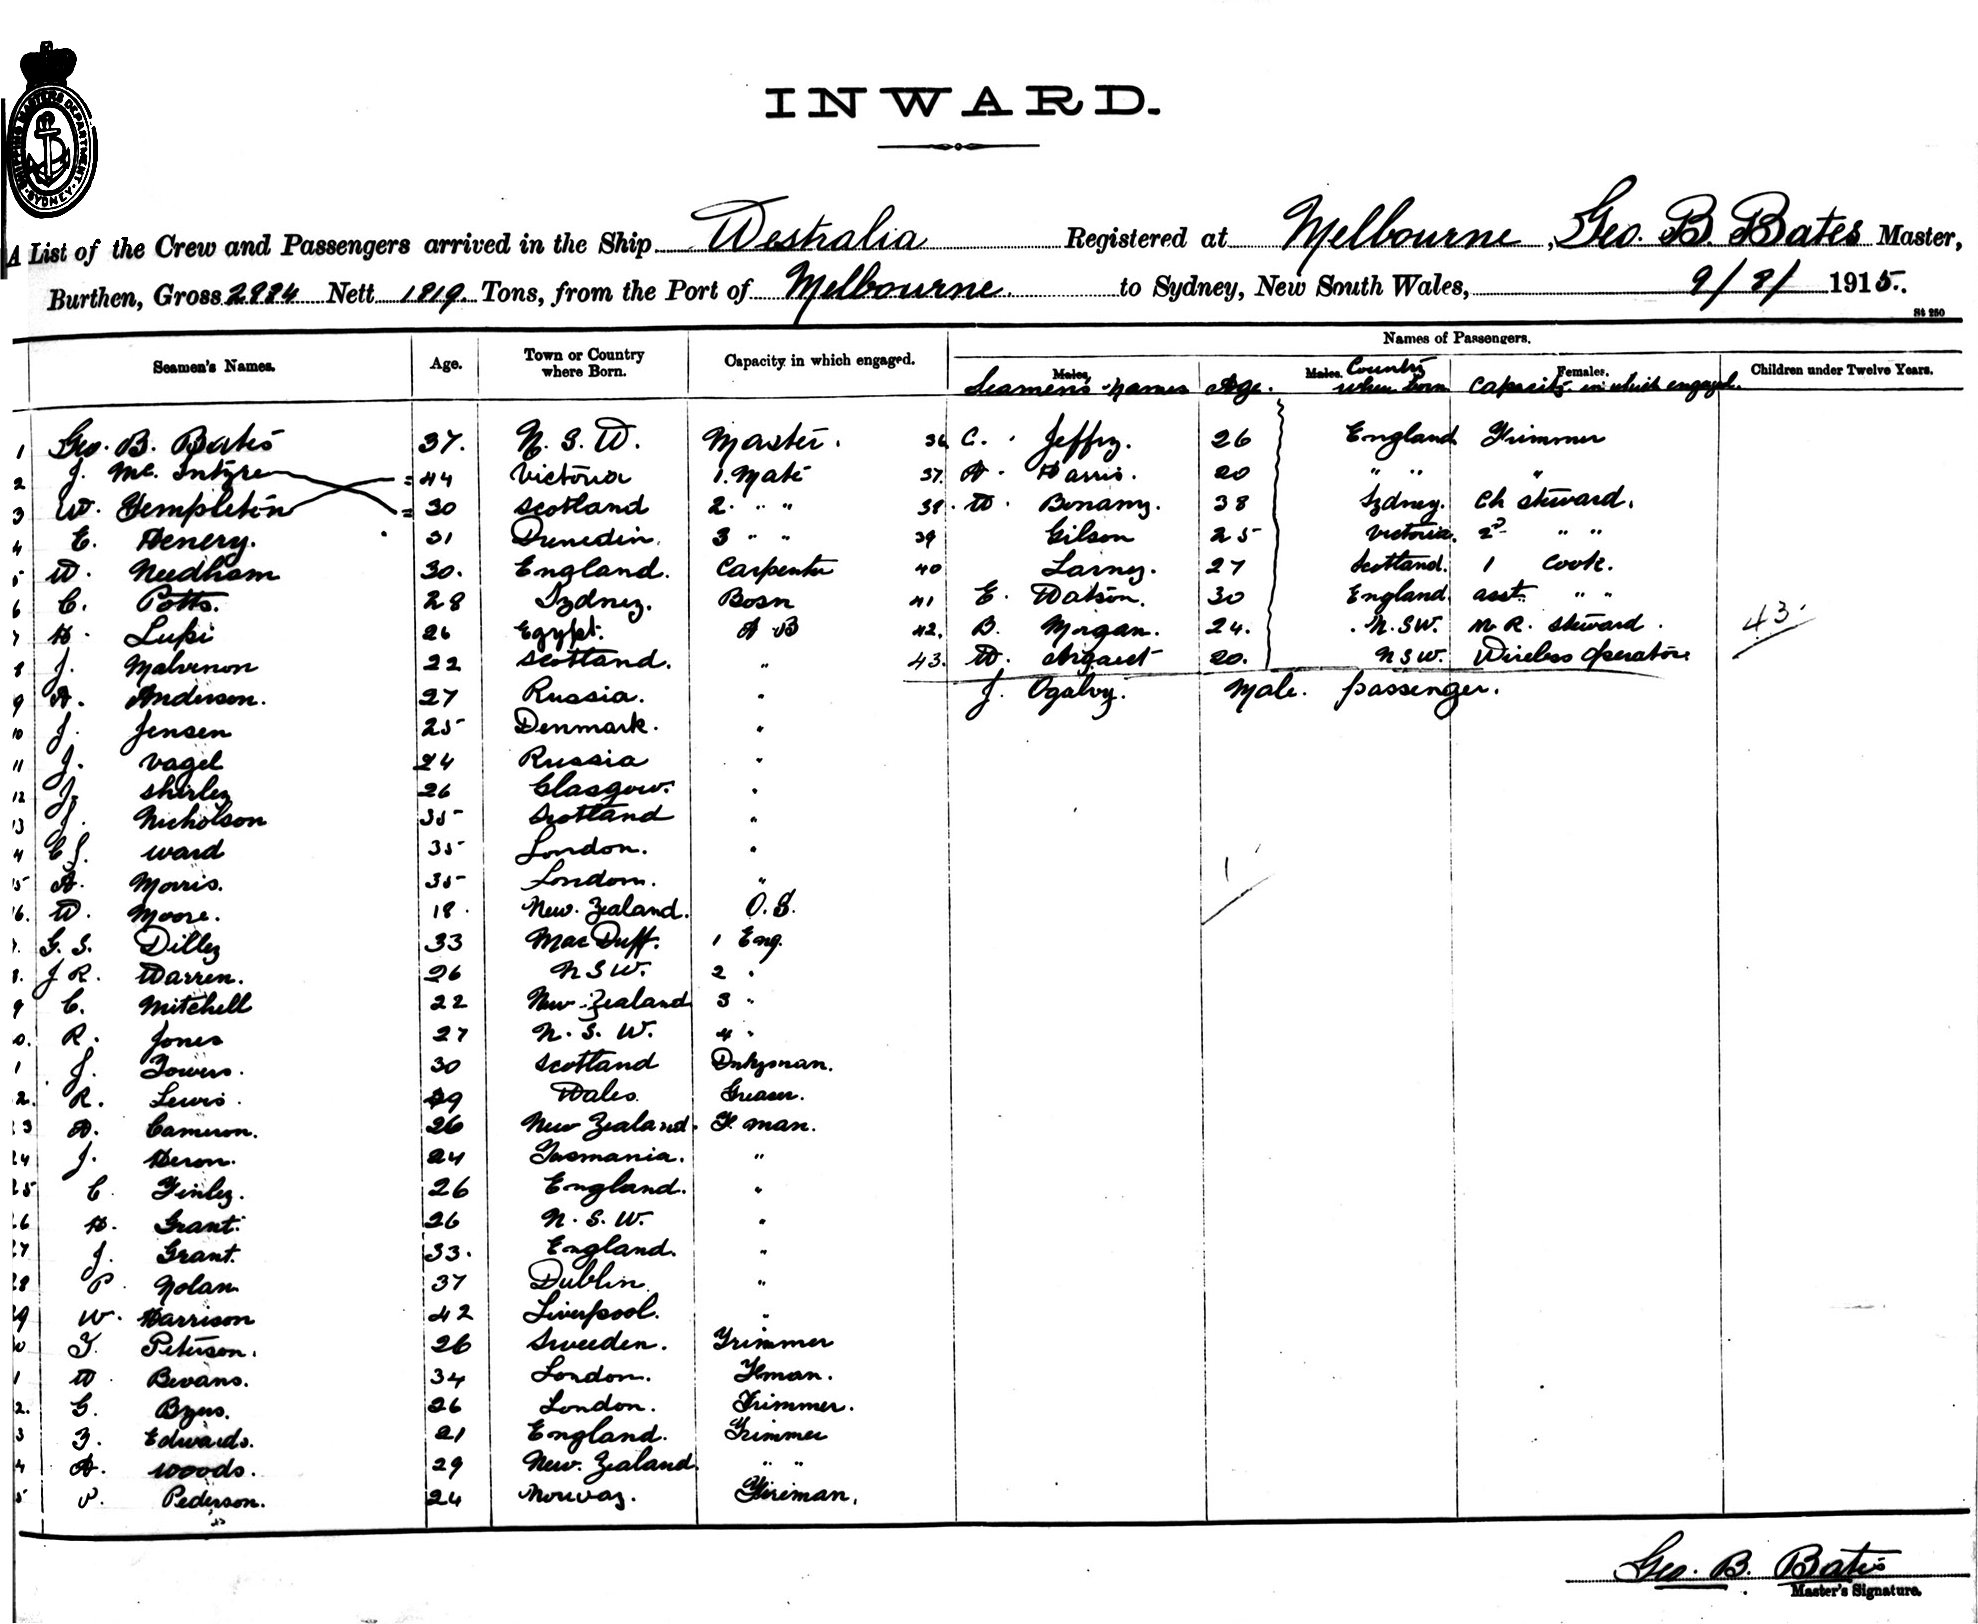 SHIPPING MASTERS DEPARTMENT SYDNEY
INWARD.
A List of the Crew and Passengers arrived in the Ship Westralia Registered at Melbourne, Geo. B. Bates Master,
Burthen, Gross 2884 Nett 1819 Tons, from the Port of Melbourne to Sydney, New South Wales, 9/8/1915.
St 250
Seamen's Names. Age. Town or Country where Born. Capacity in which engaged. Names of Passengers.
Males. Males. Females. Children under Twelve Years.
Seamen's Names Age. Country where born Capacity in which engaged.
1 Geo. B. Bates 37. N. S. W. Master. 36 C. Jeffry. 26 England Trimmer
2 J. Mc. Intyre 44 Victoria 1. Mate 37. A. Harris. 20 " " "
3 W. Templeton 30 Scotland 2. " " 38. W. Bonamy. 38 Sydney. Ch Steward.
4 E. Henery. 31 Dunedin. 3 " " 39 Gilson 25 Victoria. 2D " "
5 W. Needham 30. England. Carpenter 40 Larney. 27 Scotland. 1 Cook.
6 C. Potts. 28 Sydney. Bosn 41 E. Watson. 30 England. asst. " "
7 H. Lupi 26 Egypt. A B 42. B. Morgan. 24. N. S W. M. R. Steward.
8 J. Malvenon 22 Scotland. " 43. W. 20. N S W. Wireless Operator
43.
9 A. Anderson. 27 Russia. " J. Ogalvy. Male. passenger.
10 J. Jensen 25 Denmark. "
11 J. Vagel 24 Russia "
12 J. Shirley 26 Glasgow. "
13 J. Nicholson 35 Scotland "
4 C J. Ward 35 London. "
5 A. Morris. 35 London. " 1
6. W. Moore. 18. New. Zealand. O. S.
7. G. S. Dilley 33 MacDuff. 1 Eng.
8. J R. Warren. 26 N S W. 2 "
9 C. Mitchell 22 New. Zealand 3 "
0. R. Jones 27 N. S. W. 4 "
1 J. Towers. 30 Scotland Dnkyman.
2. R. Lewis. 29 Wales. Greaser.
23 A. Cameron. 26 New Zealand. F. man.
24 J. Heron. 24 Tasmania. "
25 C. Finley. 26 England. "
26 H. Grant. 26 N. S. W. "
27 J. Grant. 33. England. "
28 P. Nolan 37 Dublin. "
29 W. Harrison 42 Liverpool. "
0 T. Peterson. 26 Sweeden. Trimmer
1 W. Bevans. 34 London. Fman.
2. G. Byers. 26 London. Trimmer.
3 F. Edwards. 21 England. Trimmer
4 A. Woods. 29 New. Zealand. " "
5 P. Pederson. 24 Norway. Fireman.
Geo. B. Bates
Master's Signature.